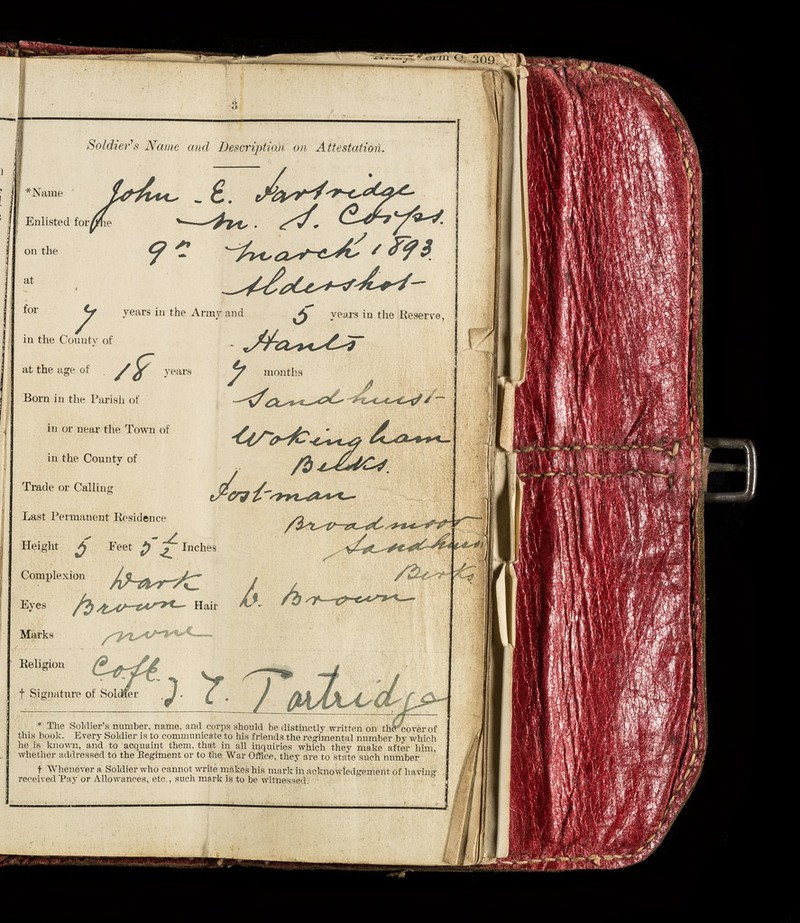 Army Form C. 309.
3
Soldier's Name and Description on Attestation.
*Name John E. Partridge
Enlisted for the M. S. Corps.
on the 9th March 1893.
at Aldershot
for 7 years in the Army and 5 years in the Reserve,
in the County of Hants
at the age of 18 years 7 months
Born in the Parish of Sandhurst
in or near the Town of Wokingham
in the County of Berks.
Trade or Calling Postman
Last Permanent Residence Broadmoor
Sandhurst
Berks
Height 5 Feet 5 1/2 Inches
Complexion Dark
Eyes Brown Hair D. Brown
Marks none
Religion C of E.
† Signature of Soldier J. E. Partridge
* The Soldier's number, name, and corps should be distinctly written on the cover of
this book. Every Soldier is to communicate to his friends the regimental number by which
he is known, and to acquaint them, that in all inquiries which they make after him,
whether addressed to the Regiment or to the War Office, they are to state such number
† Whenever a Soldier who cannot write makes his mark in acknowledgement of having
received Pay or Allowances, etc., such mark is to be witnessed.